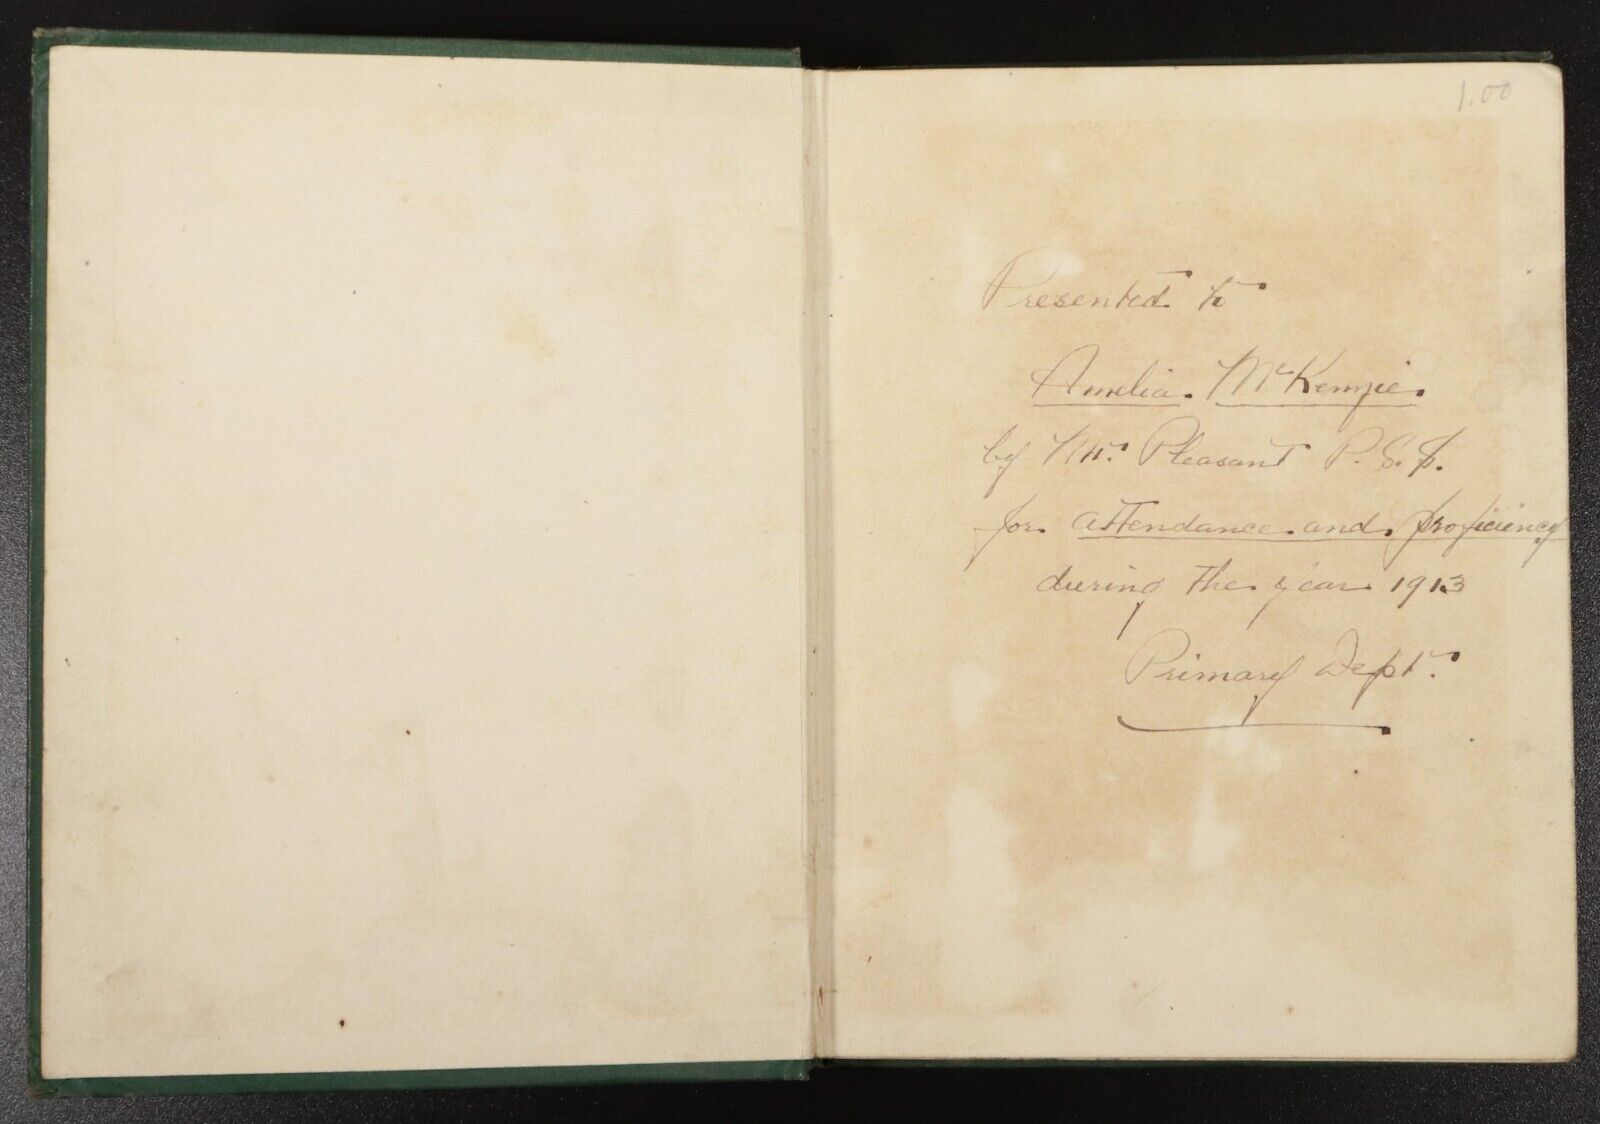 1.00
Presented to
Amelia McKenzie.
by Mt. Pleasant P. S. S.
for attendance and proficiency
during the year 1913
Primary Dept.